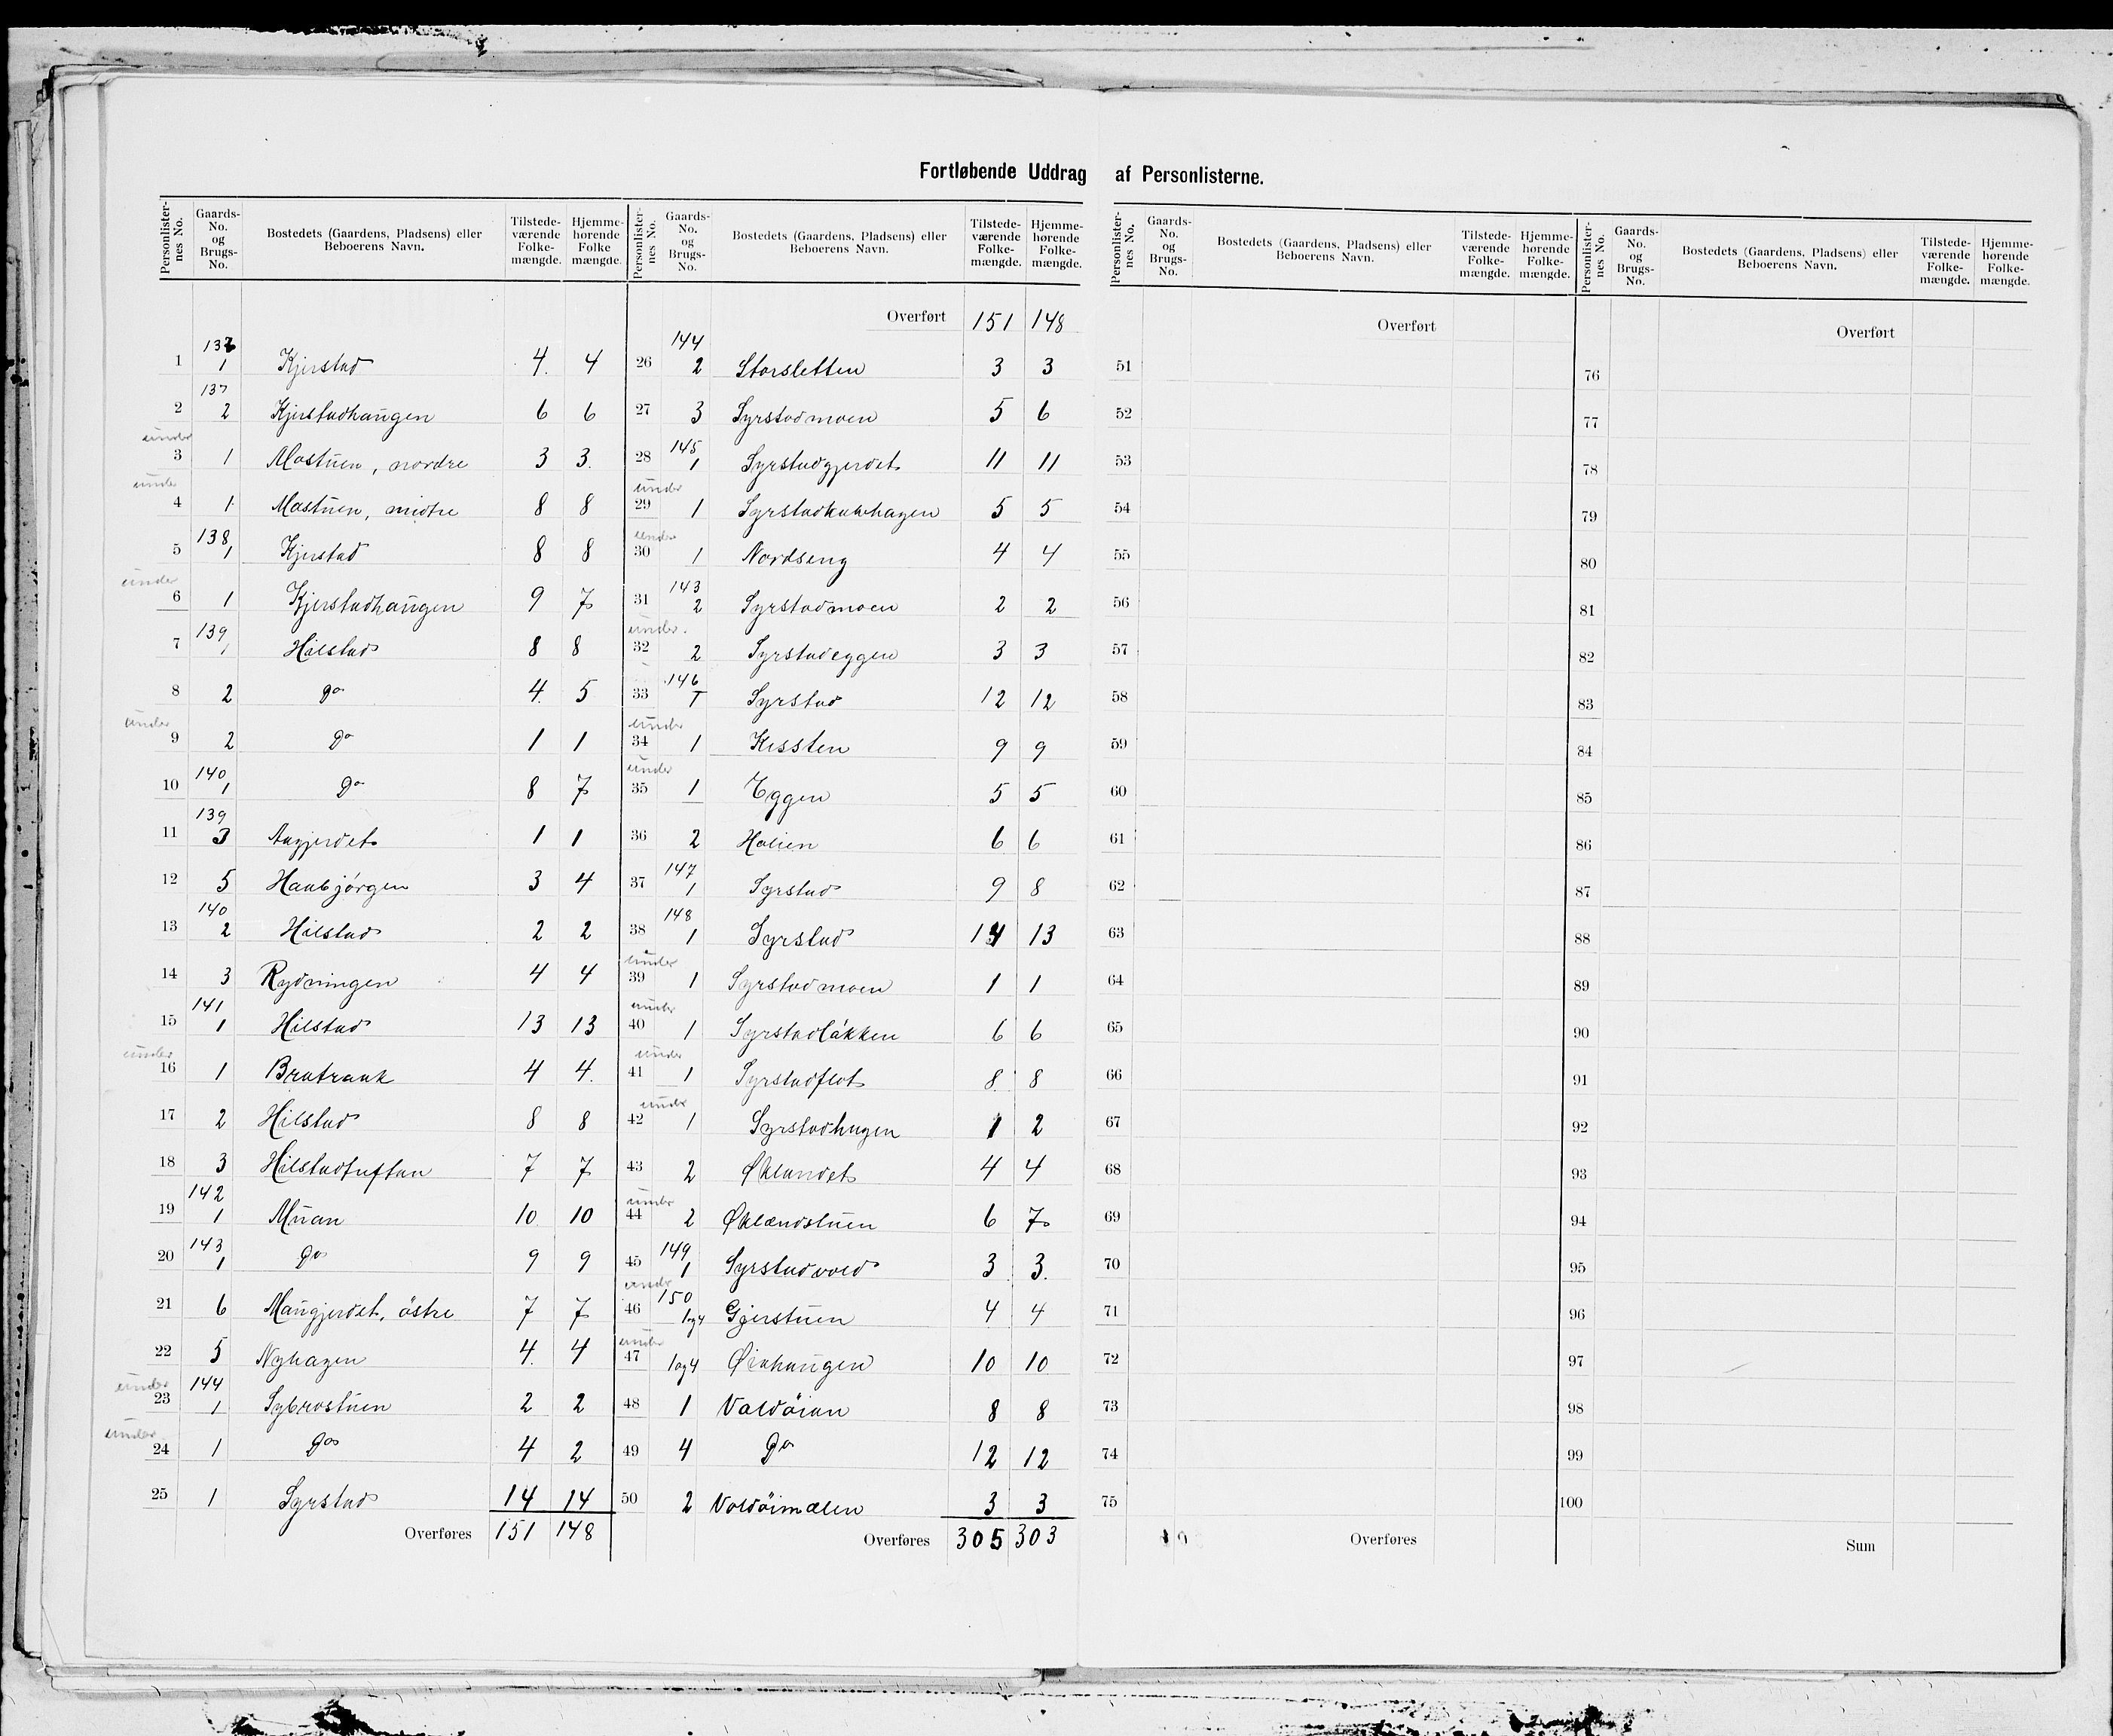 Fortløbende Uddrag af Personlisterne.
Personlisternes No. Gaards-No. og Brugs-No. Bostedets (Gaardens, Pladsens) eller Beboerens Navn. Tilstedeværende Folkemængde. Hjemmehørende Folke mængde.
1 137 1 Kjerstad 4 4
2 137 2 Kjerstadhaugen 6 6
under 3 1 Mostuen, nordre 3 3
under 4 1 Mostuen, midtre 8 8
5 138 1 Kjerstad 8 8
under 6 1 Kjerstadhaugen 9 7
7 139 1 Hilstad 8 8
8 2 Do 4 5
under 9 2 Do 1 1
10 140 1 Do 8 7
11 139 3 Aagjerdet 1 1
12 5 Haubjørgen 3 4
13 140 2 Hilstad 2 2
14 3 Rydningen 4 4
15 141 1 Hilstad 13 13
under 16 1 4 4
17 2 Hilstad 8 8
18 3 Hilstadtuftan 7 7
19 142 1 Muan 10 10
20 143 1 Do 9 9
21 6 Maugjerdet, østre 7 7
22 5 Nyhagen 4 4
under 23 144 1 Sybrostuen 2 2
under 24 1 Do 4 2
25 1 Syrstad 14 14
Overføres 151 148
Personlisternes No. Gaards-No. og Brugs-No. Bostedets (Gaardens, Pladsens) eller Beboerens Navn. Tilstedeværende Folkemængde. Hjemmehørende Folkemængde.
Overført 151 148
26 144 2 Storsletten 3 3
27 3 Syrstadmoen 5 6
28 145 1 Syrstadgjerdet 11 11
under 29 1 5 5
under 30 1 Nordseng 4 4
31 143 2 Syrstadmoen 2 2
under 32 2 Syrstadeggen 3 3
33 146 1 Syrstad 12 12
under 34 1 Kissten 9 9
under 35 1 Eggen 5 5
36 2 Holien 6 6
37 147 1 Syrstad 9 8
38 148 1 Syrstad 14 13
under 39 1 Syrstadmoen 1 1
under 40 1 Syrstadløkken 6 6
under 41 1 Syrstadflot 8 8
under 42 1 Syrstadhagen 1 2
43 2 Øklandet 4 4
under 44 2 Øklandstuen 6 7
45 149 1 Syrstadvold 3 3
under 46 150 1 og 4 Gjerstuen 4 4
under 47 1 og 4 Øiahaugen 10 10
48 1 Valdøian 8 8
49 4 Do 12 12
50 2 Voldøimælen 3 3
Overføres 305 303
Personlisternes No. Gaards-No. og Brugs-No. Bostedets (Gaardens, Pladsens) eller Beboerens Navn. Tilstedeværende Folkemængde. Hjemmehørende Folkemængde.
Overført
51
52
53
54
55
56
57
58
59
60
61
62
63
64
65
66
67
68
69
70
71
72
73
74
75
Overføres
Personlisternes No. Gaards-No. og Brugs-No. Bostedets (Gaardens, Pladsens) eller Beboerens Navn. Tilstedeværende Folkemængde. Hjemmehørende Folkemængde.
Overført
76
77
78
79
80
81
82
83
84
85
86
87
88
89
90
91
92
93
94
95
96
97
98
99
100
Sum